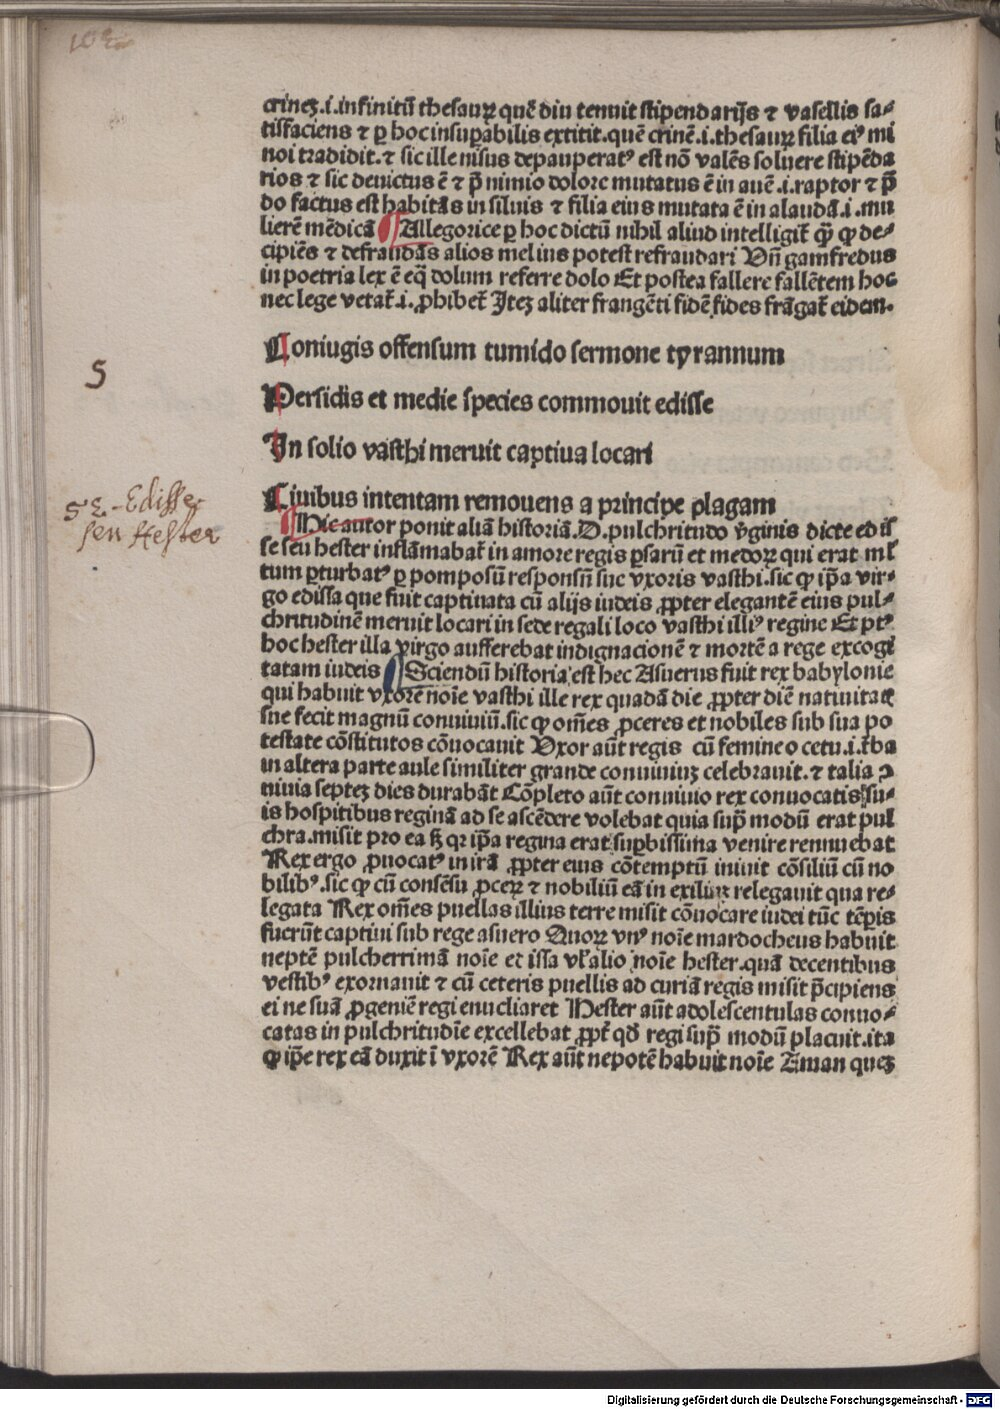 crineȝ.i.infinitū thesauꝝ quē diu tenuit stipendarijs ⁊ vasellis sa-
tisfaciens ⁊ ꝑ hoc insuꝑabilis extitit.quē crinē.i.thesauꝝ filia eiꝰ mi
noi tradidit.⁊ sic ille nisus depauperatꝰ est nō valēs soluere stipēda
rios ⁊ sic deuictus ē ⁊ p̄ nimio dolore mutatus ē in auē.i.raptor ⁊ p̄
do factus est habitās in siluis ⁊ filia eius mutata ē in alaudā.i.mu
lierē mēdicā ¶Allegorice ꝑ hoc dictū nihil aliud intelligit̄ qͥꝫ ꝙ de-
cipiēs ⁊ defraudās alios melius potest refraudari Vn̄ gamfredus
in poetria lex ē eq̄ dolum referre dolo Et postea fallere fallētem hoc
nec lege vetat̄.i.ꝓhibet̄ Iteȝ aliter frangēti fidē fides frāgat̄ eidem.
Coniugis offensum tumido sermone tyrannum
5
Persidis et medie species commouit edisse
In solio vasthi meruit captiua locari
Ciuibus intentam remouens a principe plagam
52.-Edisse-
seu Hester
¶Hic autor ponit aliā historiā.D.pulchritudo v̄ginis dicte edis
se seu hester inflāmabat̄ in amore regis ꝑsarū et medoꝝ qui erat ml̄
tum ꝑturbatꝰ ꝑ pomposū responsū sue vxoris vasthi.sic ꝙ ip̄a vir-
go edissa que fuit captiuata cū alijs iudeis ꝓpter elegantē eius pul-
chritudinē meruit locari in sede regali loco vasthi illiꝰ regine Et ptꝰ
hoc hester illa virgo aufferebat indignacionē ⁊ mortē a rege excogi
tatam iudeis ¶Sciendū historia est hec Asuerus fuit rex babylonie
qui habuit vxorē noīe vasthi ille rex quadā die ꝓpter diē natiuitatꝭ
sue fecit magnū conuiuiū.sic ꝙ om̄es ꝓceres et nobiles sub sua po
testate cōstitutos cōuocauit Vxor aūt regis cū femineo cetu.i.t̄ba
in altera parte aule similiter grande conuiuiuȝ celebrauit.⁊ talia ꝯ
niuia septeȝ dies durabāt Cōpleto aūt conuiuio rex conuocatis su-
is hospitibus reginā ad se ascēdere volebat quia suꝑ modū erat pul
chra.misit pro ea sꝫ qr ip̄a regina erat suꝑbissima venire rennuebat
Rex ergo ꝓuocatꝰ in irā ꝓpter eius cōtemptū iniuit cōsiliū cū no
bilibꝰ.sic ꝙ cū consēsu ꝓceꝝ ⁊ nobiliū eā in exiliuȝ relegauit qua re-
legata Rex om̄es puellas illius terre misit cōuocare iudei tūc tēꝑis
fuerūt captiui sub rege asuero Quoꝝ vnꝰ noīe mardocheus habuit
neptē pulcherrimā noīe et issa vl̄ alio noīe hester.quā decentibus
vestibꝰ exornauit ⁊ cū ceteris puellis ad curiā regis misit p̄cipiens
ei ne suā ꝓgeniē regi enucliaret Hester aūt adolescentulas conuo-
catas in pulchritudīe excellebat ꝓpt̄ qd̄ regi suꝑ modū placuit.ita
ꝙ ip̄e rex eā duxit ī vxorē Rex aūt nepotē habuit noīe Aman queȝ
Digitalisierung gefördert durch die Deutsche Forschungsgemeinschaft - DFG